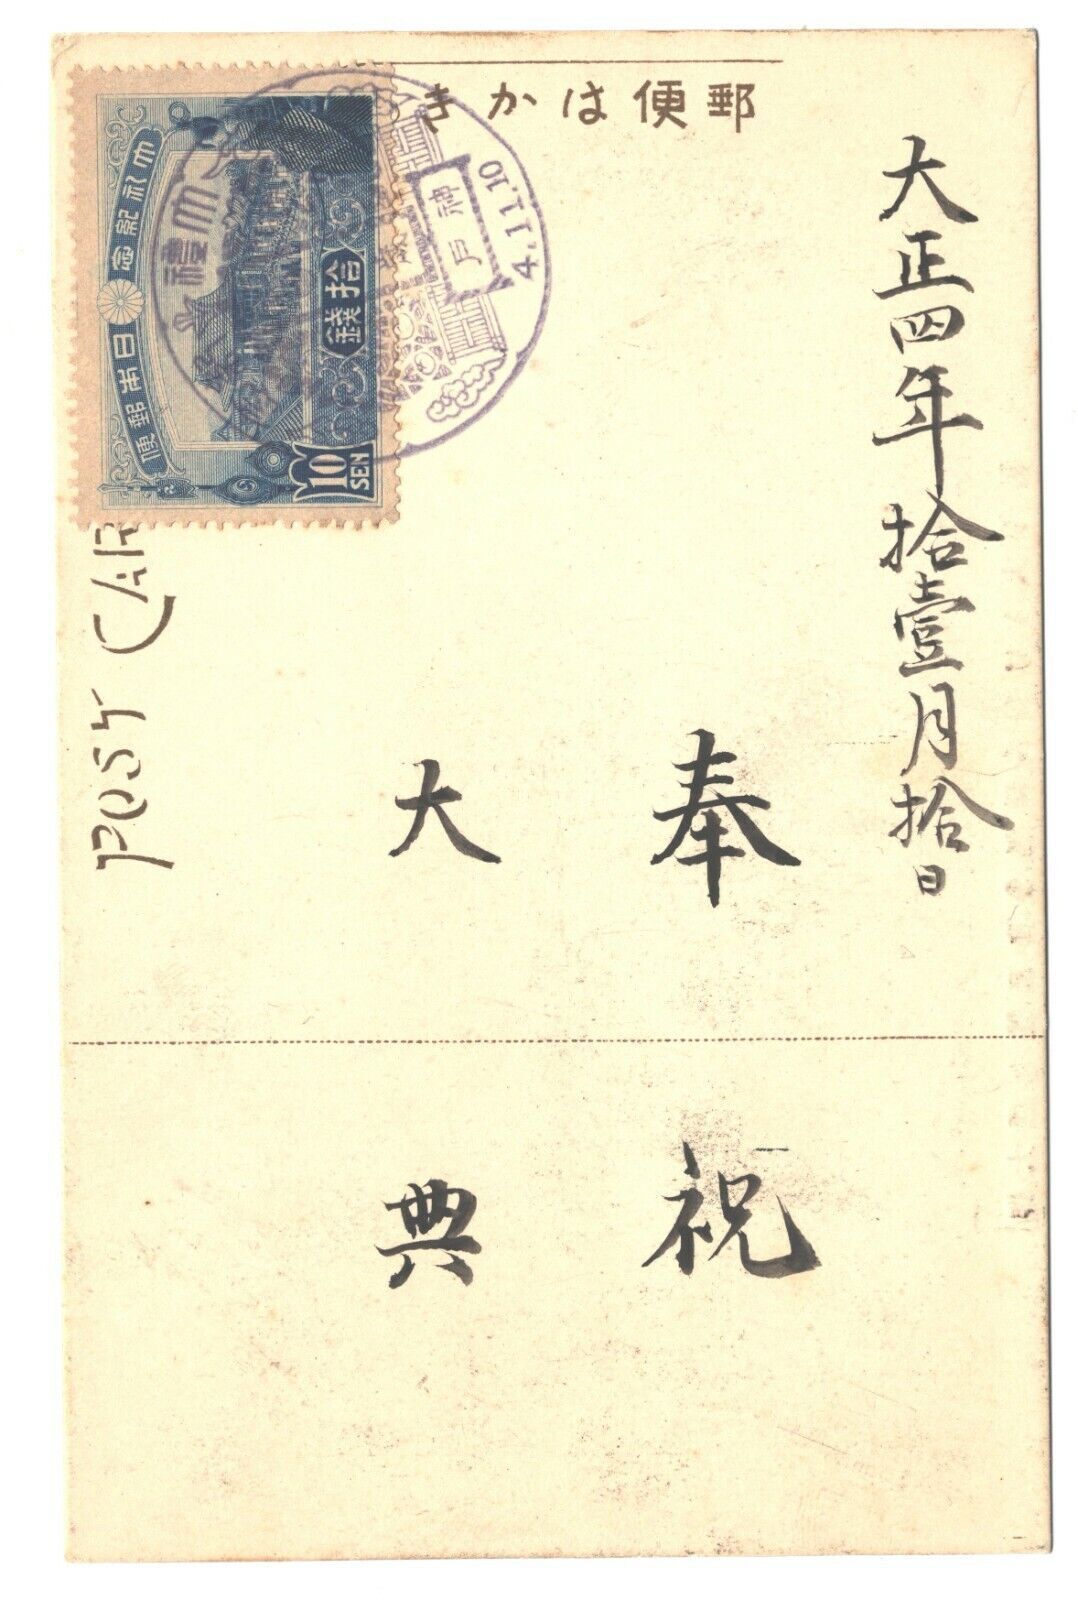 郵便はかき
大正四年拾壹月拾日
奉祝
大典
POST CAR
大礼紀念
日本郵便
拾錢
10 SEN
大禮
神戸
4.11.10